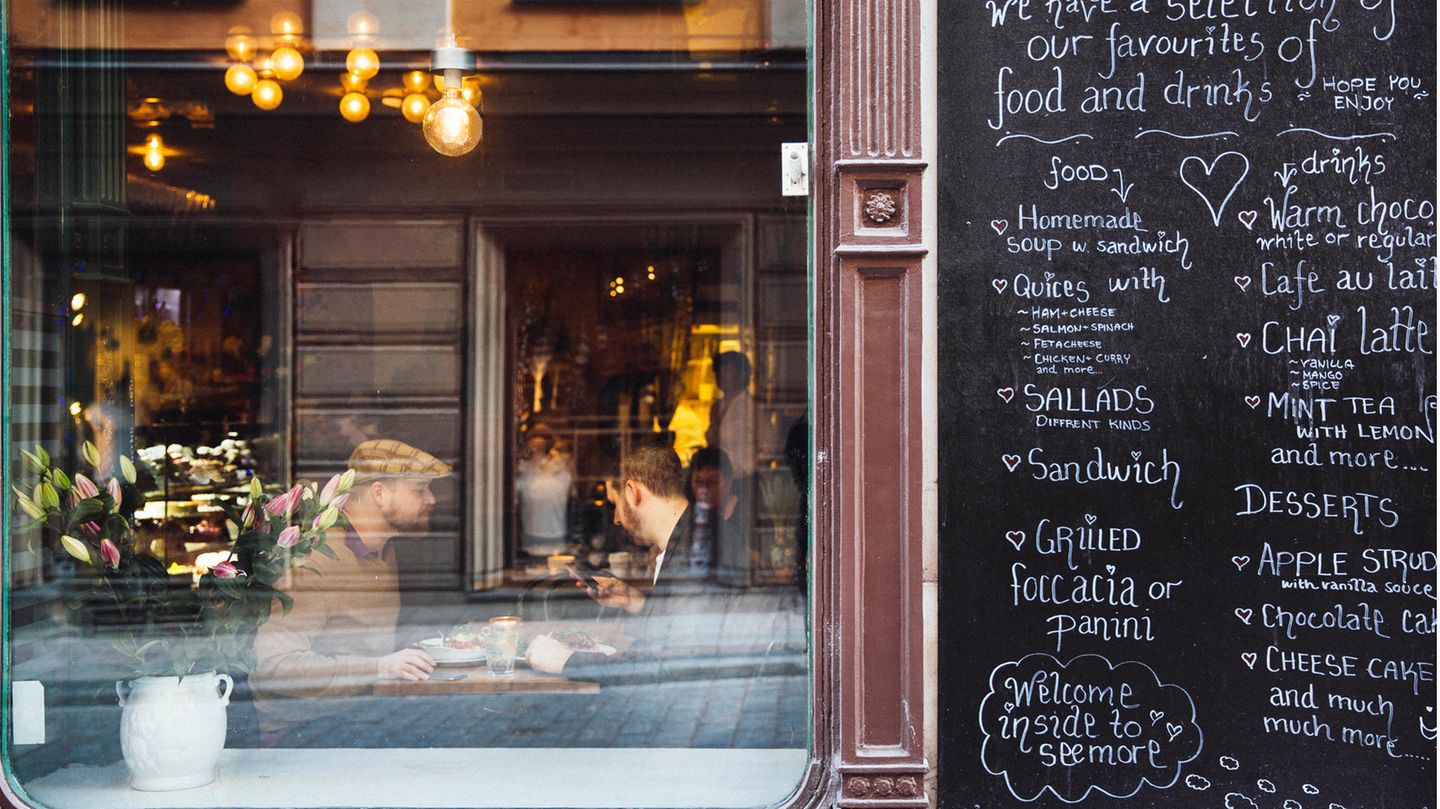 We have a selection of
our favourites of
food and drinks
~ HOPE YOU ~
ENJOY
food
Homemade
soup w. sandwich
Quices with
~ HAM + CHEESE
~ SALMON + SPINACH
~ FETACHEESE
~ CHICKEN + CURRY
and more...
SALLADS
DIFFRENT KINDS
Sandwich
GRILLED
foccacia or
panini
Welcome
inside to
see more
drinks
Warm choco
white or regular
Cafe au lait
CHAI latte
~ VANILLA
~ MANGO
~ SPICE
MINT TEA
WITH LEMON
and more....
DESSERTS
APPLE STRUD
with vanilla souce
Chocolate cak
CHEESE CAKE
and much
much more.....